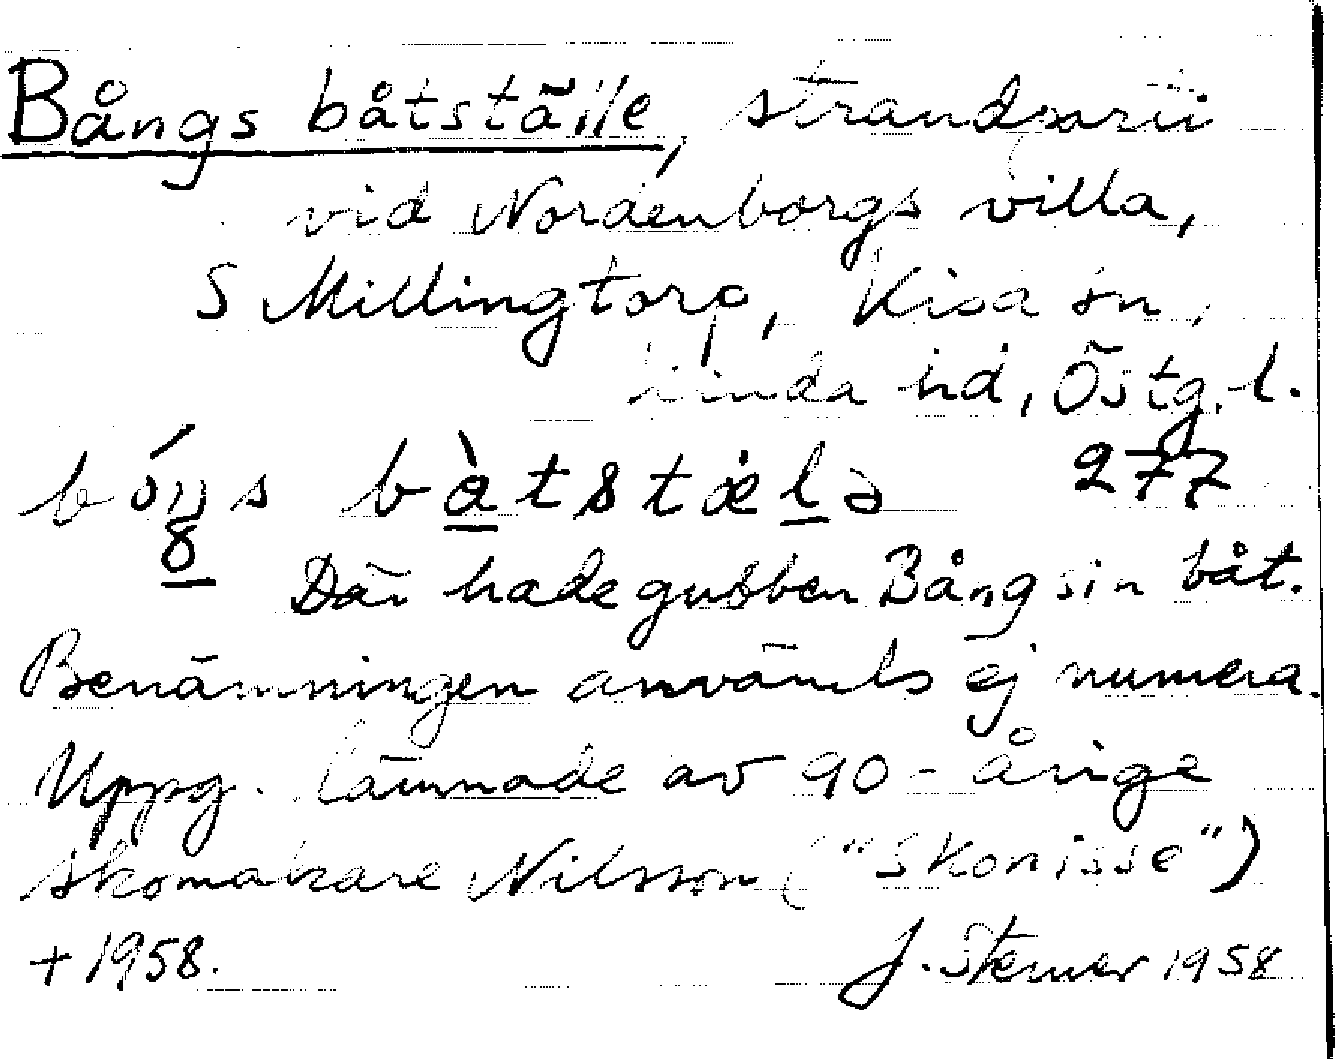 Bångs båtställe, strandparti
vid Nordenborgs villa,
S Millingtorp, Kisa sn,
Kinda hd, Östg. l.
bóŋs bàtstælə 277
8
Där hade gubben Bång sin båt.
Benämningen används ej numera.
Uppg. lämnade av 90-årige
skomakare Nilsson ("Skonisse")
+ 1958. J. Sterner 1958